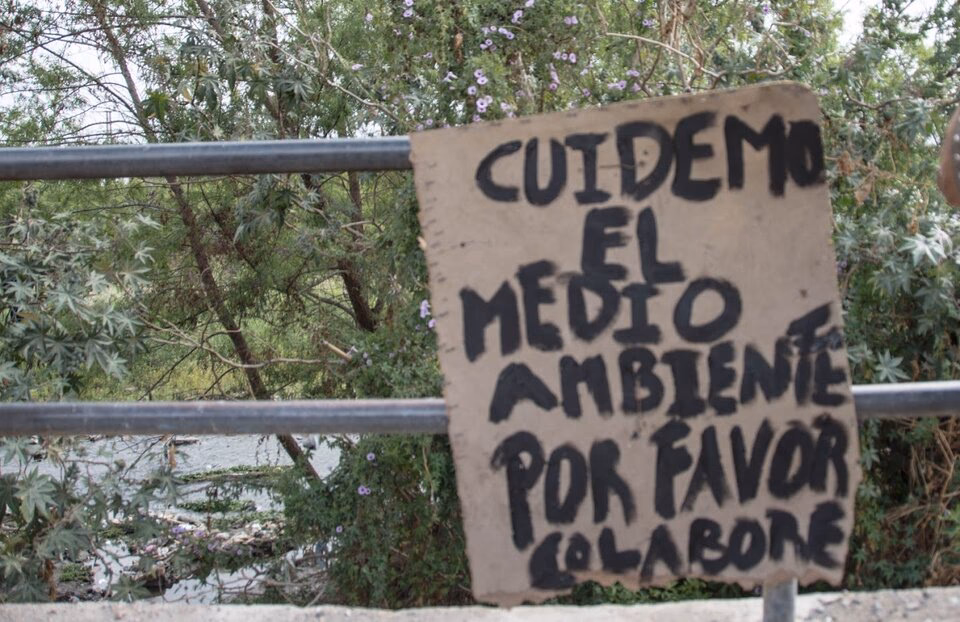 CUIDEMO
EL
MEDIO
AMBIENTE
POR FAVOR
COLABORE